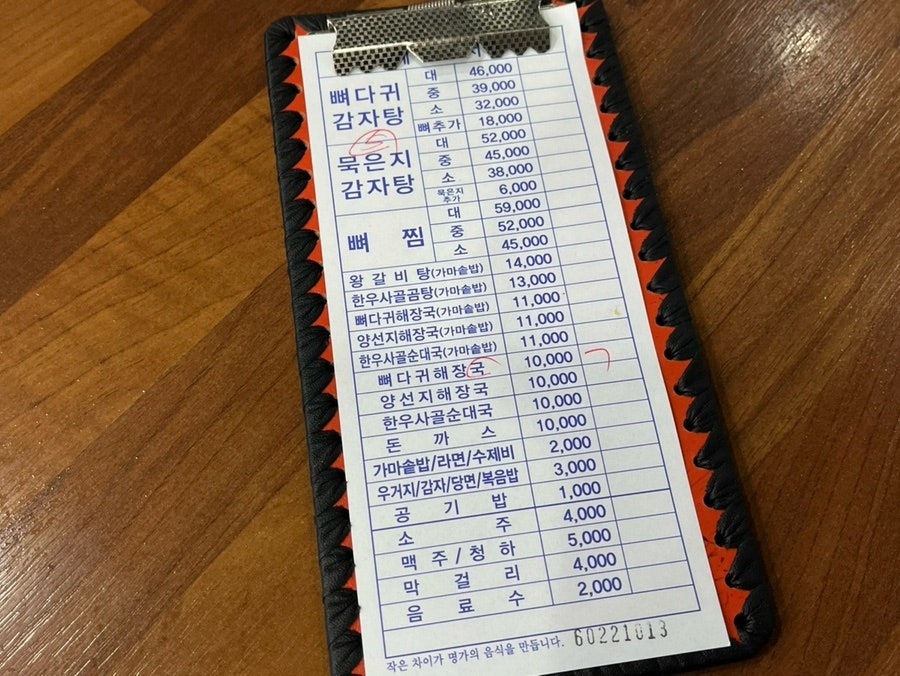 뼈다귀
감자탕
대 46,000
중 39,000
소 32,000
뼈추가 18,000
5
묵은지
감자탕
대 52,000
중 45,000
소 38,000
묵은지
추가 6,000
뼈 찜
대 59,000
중 52,000
소 45,000
왕갈비탕(가마솥밥) 14,000
한우사골곰탕(가마솥밥) 13,000
뼈다귀해장국(가마솥밥) 11,000
양선지해장국(가마솥밥) 11,000
한우사골순대국(가마솥밥) 11,000
뼈다귀해장국 10,000
양선지해장국 10,000
한우사골순대국 10,000
돈까스 10,000
가마솥밥/라면/수제비 2,000
우거지/감자/당면/볶음밥 3,000
공기밥 1,000
소주 4,000
맥주/청하 5,000
막걸리 4,000
음료수 2,000
작은 차이가 명가의 음식을 만듭니다. 60221013